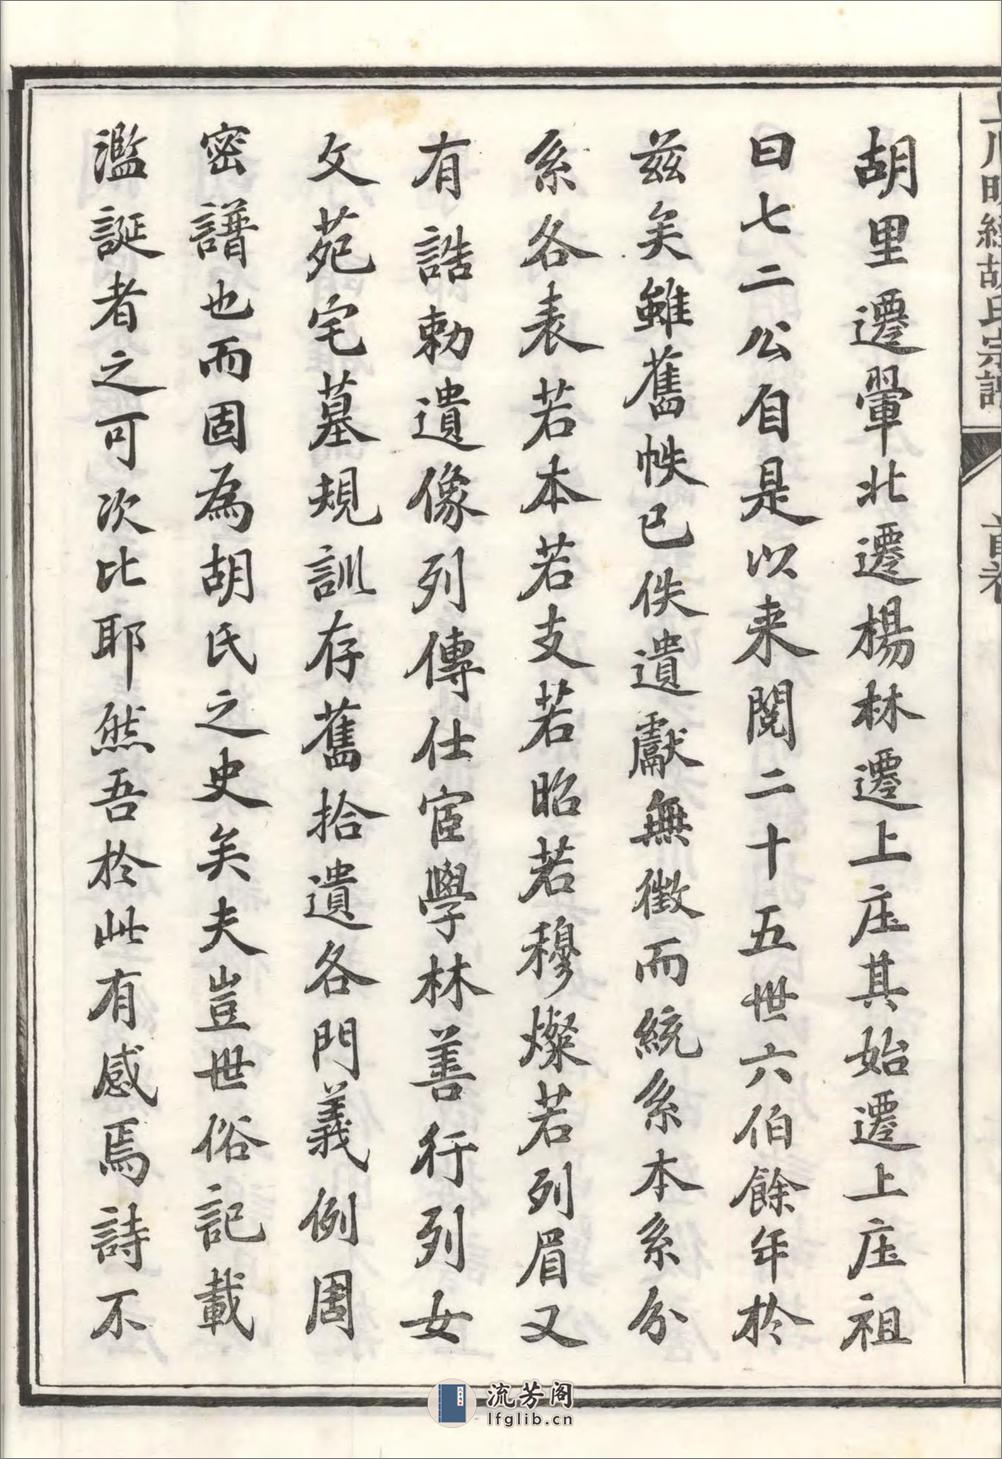 胡里遷翬北遷楊林遷上庄其始遷上庄祖
曰七二公自是以来閱二十五世六伯餘年於
兹矣雖舊帙已佚遺獻無徵而統系本系分
系各表若本若支若昭若穆燦若列眉又
有誥勅遺像列傳仕宦學林善行列女
文苑宅墓規訓存舊拾遺各門義例周
密譜也而固為胡氏之史矣夫豈世俗記載
濫誕者之可次比耶然吾於此有感焉詩不
川明經胡氏宗譜
首卷
流芳阁
lfglib.cn